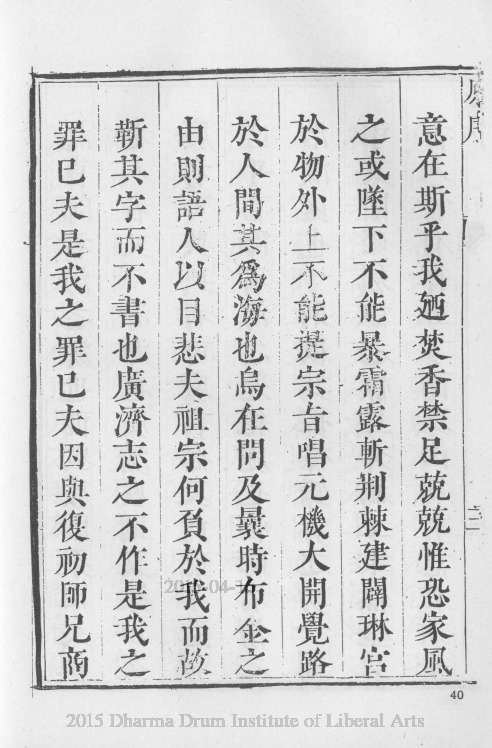 原序
意在斯乎我廼焚香禁足兢兢惟恐家風
之或墜下不能暴霜露斬荆棘建闢琳宫
於物外上不能提宗旨唱元機大開覺路
於人間其爲海也烏在問及曩時布金之
由則語人以目悲夫祖宗何負於我而故
靳其字而不書也廣濟志之不作是我之
罪巳夫是我之罪巳夫因與復初師兄商
二
40
2015 Dharma Drum Institute of Liberal Arts